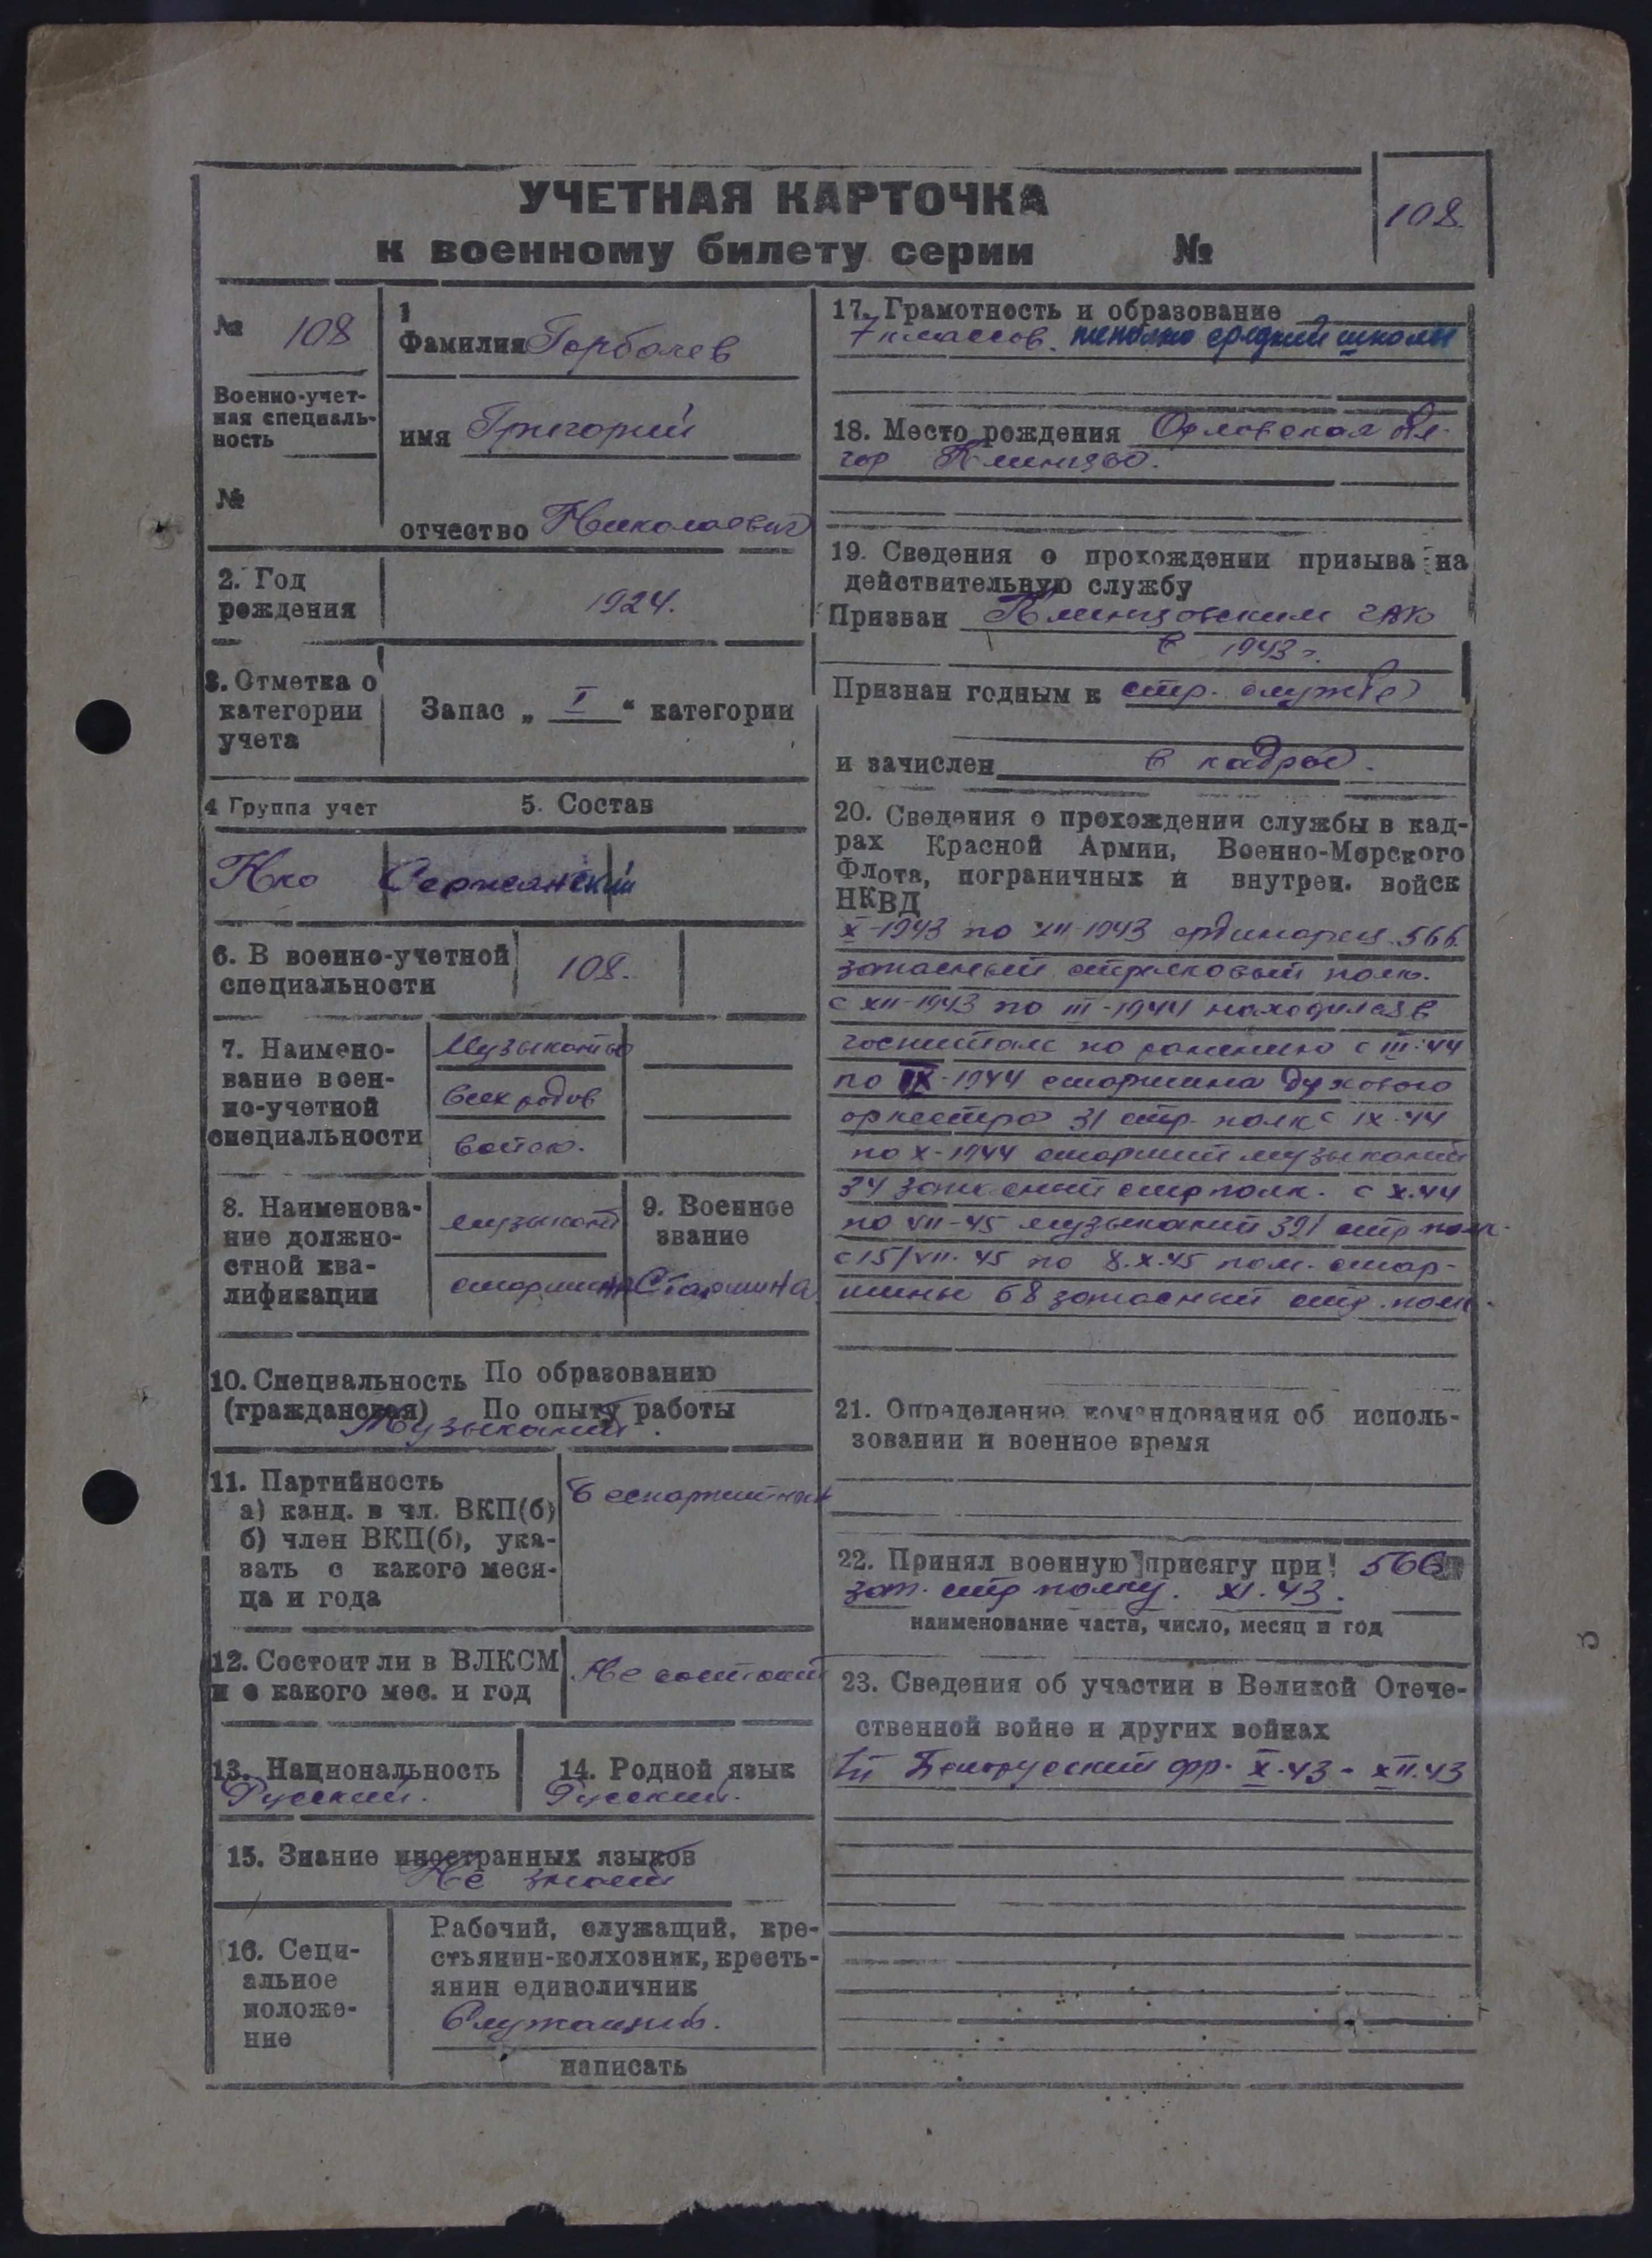 УЧЕТНАЯ КАРТОЧКА
к военному билету серии №
108.
№ 108
Военно-учет-
ная специаль-
ность
№
1
Фамилия Горбачев
имя Григорий
отчество Николаевич
2. Год
рождения
1924.
3. Отметка о
категории
учета
Запас „ I “ категории
4 Группа учет
5. Состав
Нко
Сержанский
6. В военно-учетной
специальности
108.
7. Наимено-
вание воен-
но-учетной
специальности
Музыканты
всех родов
войск.
8. Наименова-
ние должно-
стной ква-
лификации
музыкант
старшина
9. Военное
звание
Старшина
10. Специальность По образованию
(гражданская) По опыту работы
Музыкант.
11. Партийность
а) канд. в чл. ВКП(б)
б) член ВКП(б), ука-
зать с какого меся-
ца и года
Беспартийный
12. Состоит ли в ВЛКСМ
и с какого мес. и год
Не состоит
13. Национальность
Русский.
14. Родной язык
Русский.
15. Знание иностранных языков
Не знает
16. Соци-
альное
положе-
ние
Рабочий, служащий, кре-
стьянин-колхозник, кресть-
янин единоличник
Служащий.
написать
17. Грамотность и образование
7 классов. неполно средний школы
18. Место рождения Орловская обл.
гор Клинцы.
19. Сведения о прохождении призыва на
действительную службу
Призван Клинцовским ГВК
в 1943 г.
Признан годным к стр. службе
и зачислен в кадры.
20. Сведения о прохождении службы в кад-
рах Красной Армии, Военно-Морского
Флота, пограничных и внутрен. войск
НКВД
X-1943 по XII-1943 ординарец 566
запасный стрелковый полк.
с XII-1943 по III-1944 находился в
госпитале по ранению с III-44
по IX-1944 старшина духового
оркестра 31 стр. полк с IX-44
по X-1944 старший музыкант
34 запасный стр полк. с X.44
по VII-45 музыкант 321 стр полк.
с 15/VII.45 по 8.X.45 пом. стар-
шины 68 запасный стр. полк.
21. Определение командования об исполь-
зовании и военное время
22. Принял военную присягу при! 566
зап. стр полку. XI.43.
наименование части, число, месяц и год
23. Сведения об участии в Великой Отече-
ственной войне и других войнах
Белорусский фр. X.43 - XII.43
3